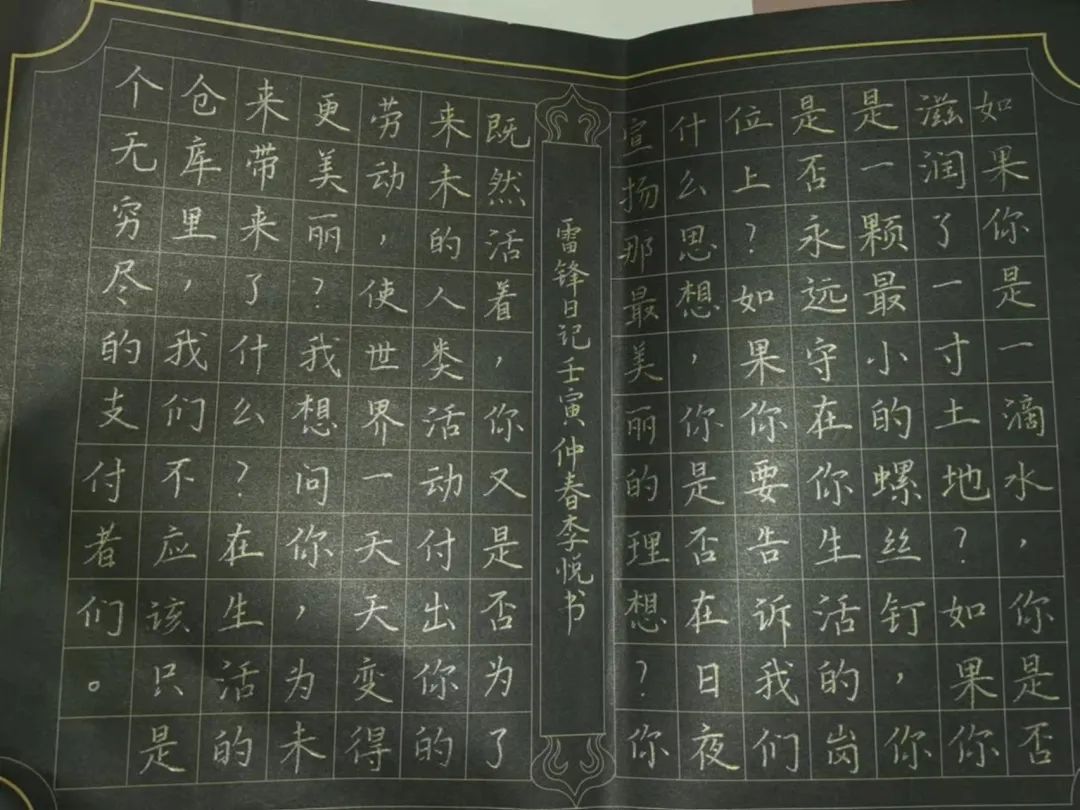 如果你是一滴水，你是否
滋润了一寸土地？如果你
是一颗最小的螺丝钉，你
是否永远守在你生活的岗
位上？如果你要告诉我们
什么思想，你是否在日夜
宣扬那最美丽的理想？你
既然活着，你又是否为了
来未的人类活动付出你的
劳动，使世界一天天变得
更美丽？我想问你，为未
来带来了什么？在生活的
仓库里，我们不应该只是
个无穷尽的支付者们。
雷锋日记壬寅仲春李悦书